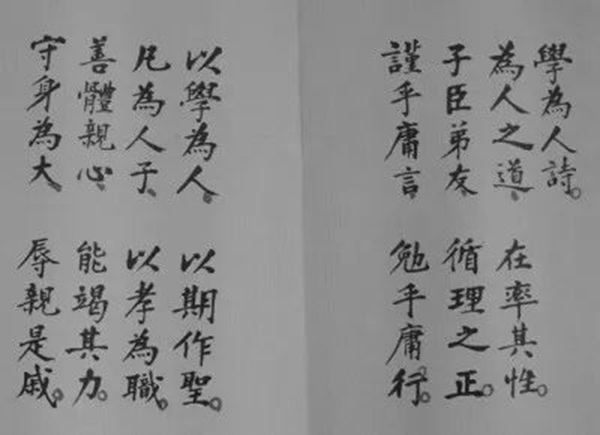 學為人詩。
為人之道、在率其性。
子臣弟友、循理之正。
謹乎庸言、勉乎庸行。
以學為人、以期作聖。
凡為人子、以孝為職。
善體親心、能竭其力。
守身為大、辱親是戚。